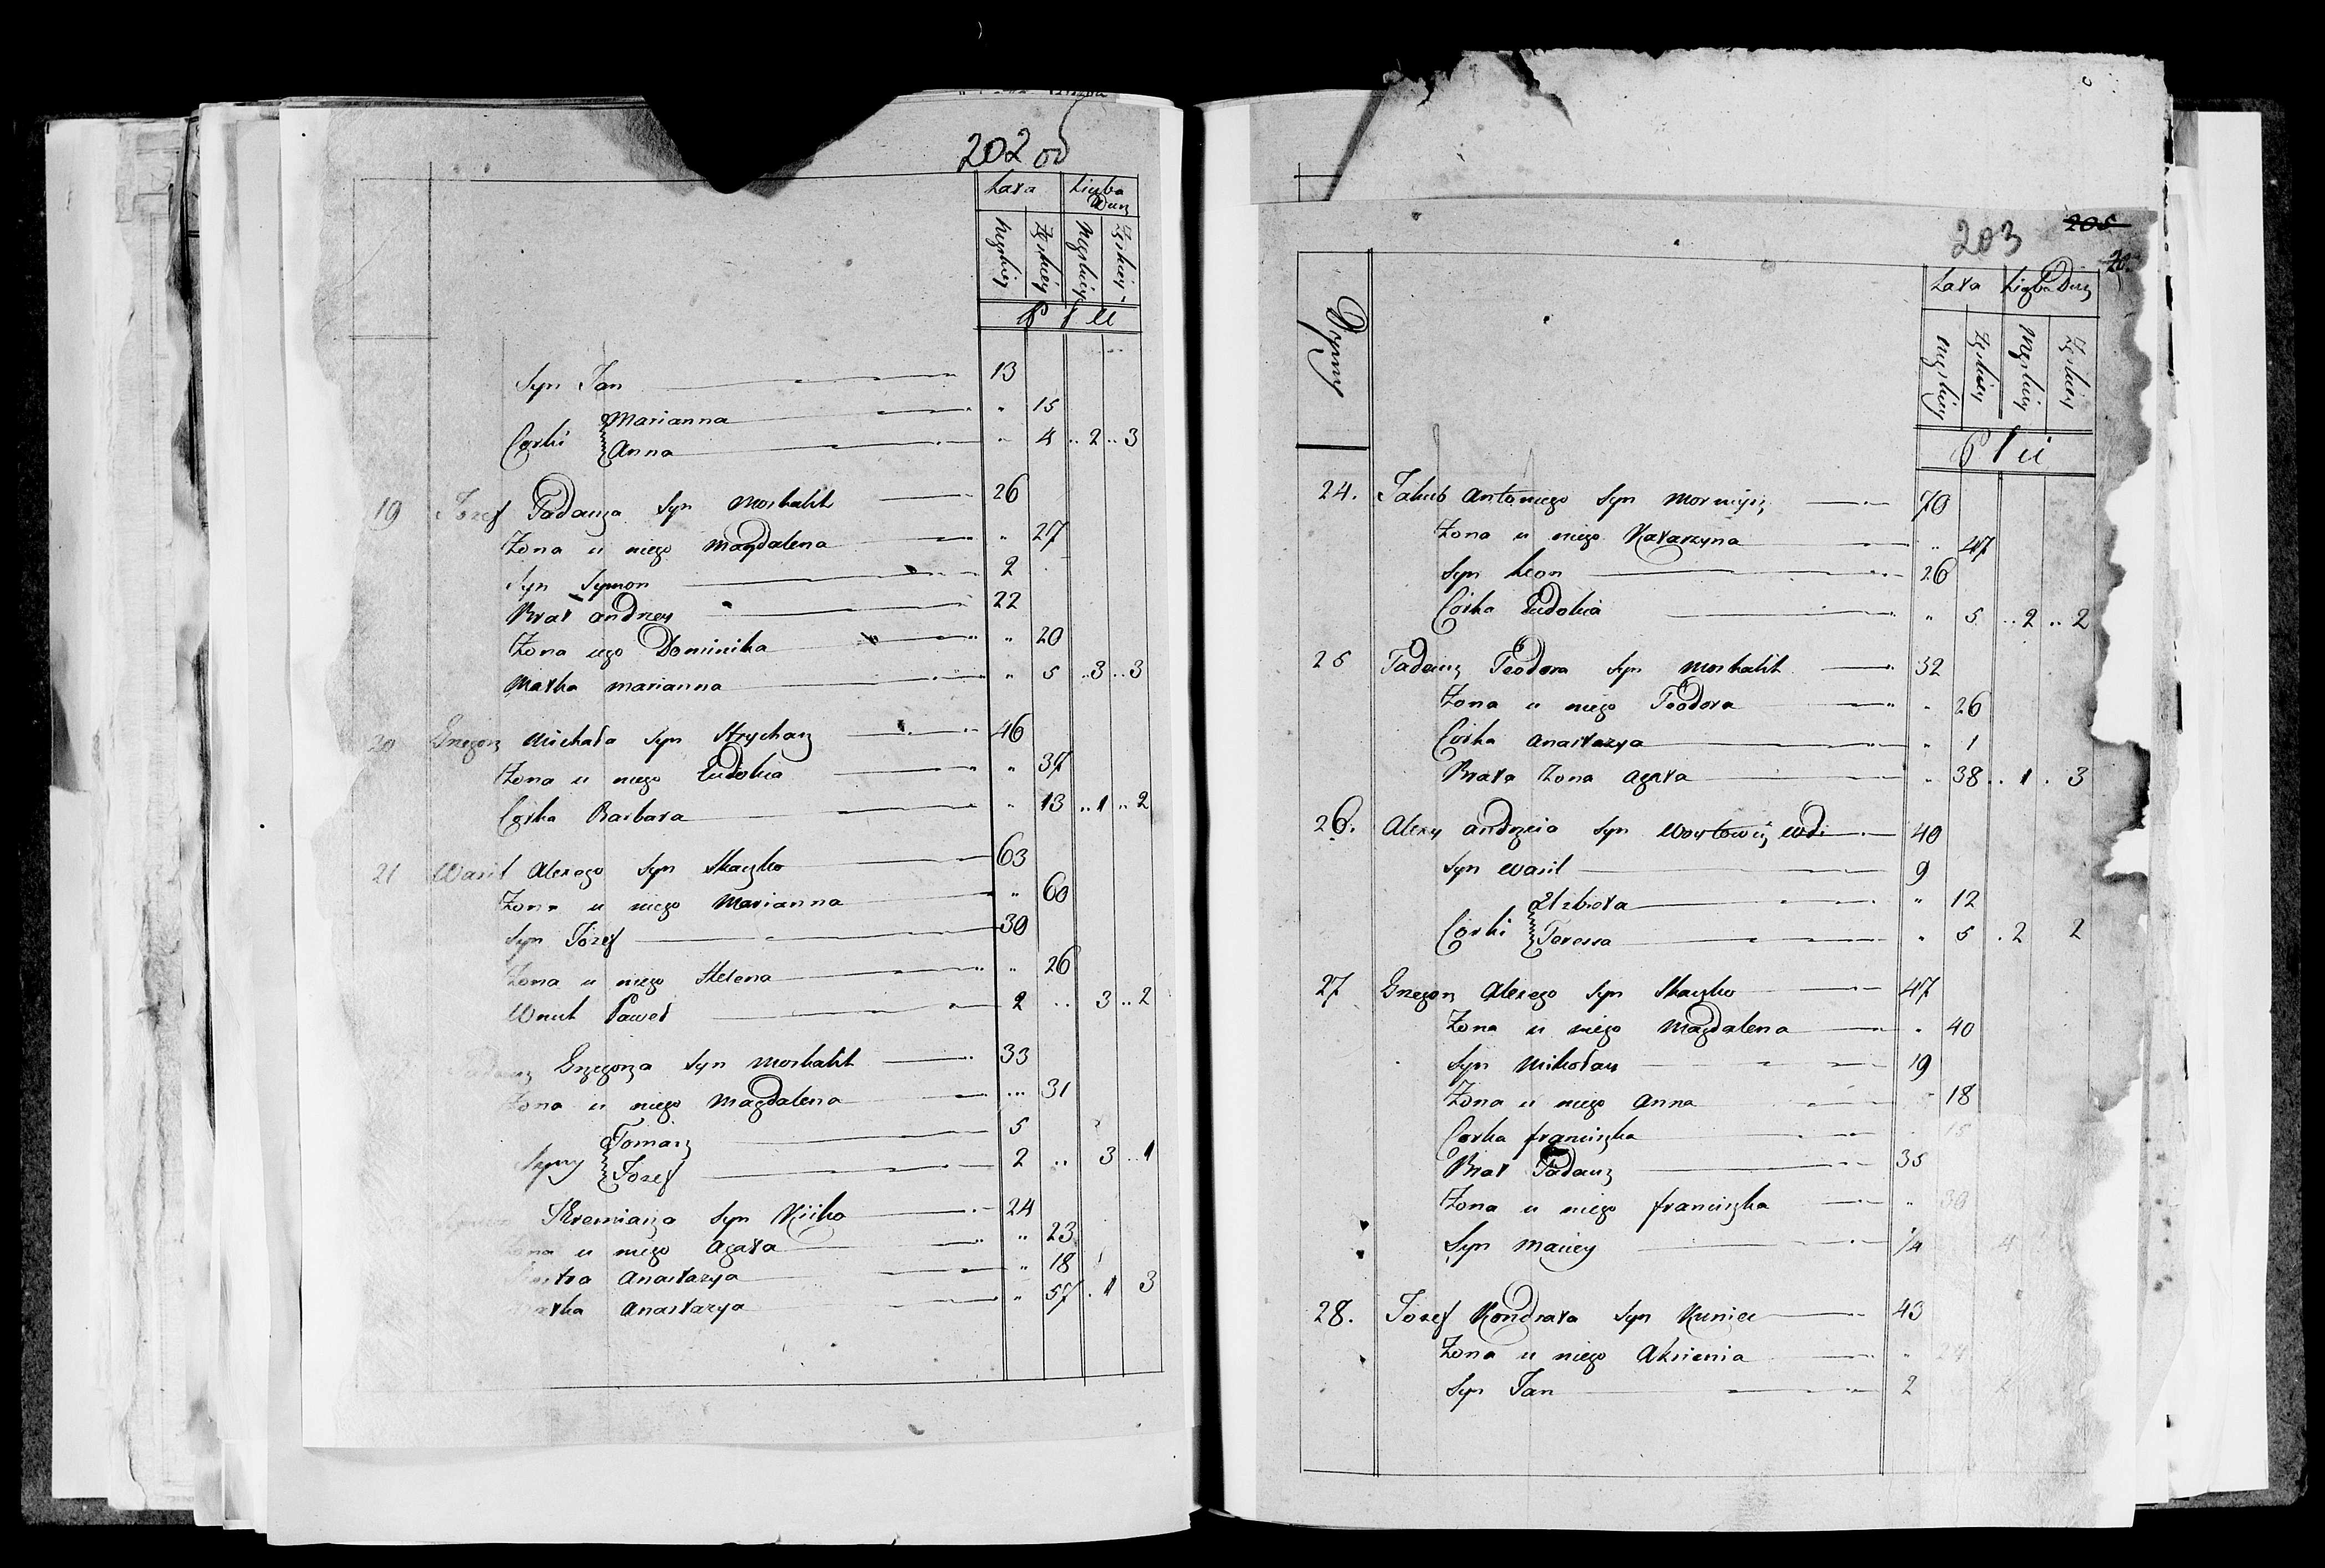 202 od
Lata Liczba Dusz
Męzkiey Żęskiey Męzkiey Żęskiey
Płci
Syn Jan 13
Marianna " 15
Corki Anna " 4 .. 2 .. 3
19 Jozef Tadeusza Syn Moskalik 26
Żona u niego Magdalena " 27
Syn Symon 2
Brat Andrzey 22
Żona iego Dominika " 20
Matka Marianna " 5 .. 3 .. 3
20 Grzegorz Michała Syn Strycharz 46
Żona u niego Eudokia " 37
Corka Barbara " 13 .. 1 .. 2
21 Wasil Alexego Syn Skaczko 63
Żona u niego Marianna " 60
Syn Jozef 30
Żona u niego Helena " 26
Wnuk Paweł 2 .. 3 .. 2
Tadeusz Grzegorza Syn Moskalik 33
Żona u niego Magdalena ... 31
Tomasz 5
Syny Jozef 2 .. 3 .. 1
Jeremiasza Syn 24
Żona u niego Agata " 23
Siostra Anastazya " 18
Matka Anastazya " 57 . 1 3
203 205
Dymy
Lata Liczba Dusz
Męzkiey Żęskiey Męzkiey Żęskiey
Płci
24. Jakub Antoniego Syn 70
Żona u niego Katarzyna " 47
Syn Leon 26
Corka Eudokia " 5 .. 2 .. 2
25 Tadeusz Teodora Syn Moskalik 32
Żona u niego Teodora " 26
Corka Anastazya " 1
Brata Żona Agata " 38 .. 1 . 3
26. Alexy Andrzeia Syn Woytowicz, Wd. 40
Syn Wasil 9
Elzbieta " 12
Corki Teressa " 5 . 2 2
27 Grzegorz Alexego Syn Skaczko 47
Żona u niego Magdalena " 40
Syn Mikołay 19
Żona u niego Anna " 18
Corka franciszka 15
Brat Tadeusz 35
Żona u niego franciszka " 30
Syn Maciey 1/4 4
28. Jozef Kondrata Syn Kuniec 43
Żona u niego Aksienia " 24
Syn Jan 2